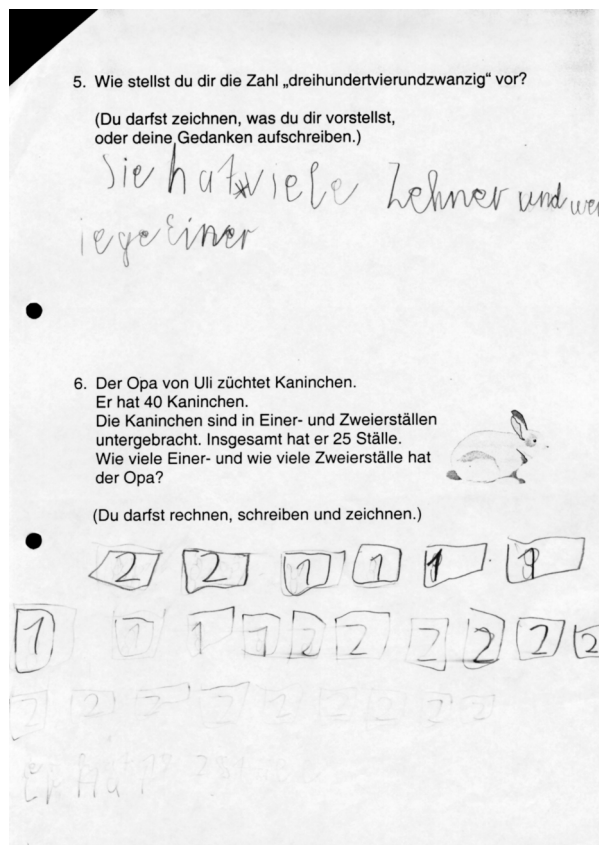 5. Wie stellst du dir die Zahl „dreihundertvierundzwanzig“ vor?
(Du darfst zeichnen, was du dir vorstellst,
oder deine Gedanken aufschreiben.)
Sie hat viele Zehner und we
iege Einer
6. Der Opa von Uli züchtet Kaninchen.
Er hat 40 Kaninchen.
Die Kaninchen sind in Einer- und Zweierställen
untergebracht. Insgesamt hat er 25 Ställe.
Wie viele Einer- und wie viele Zweierställe hat
der Opa?
(Du darfst rechnen, schreiben und zeichnen.)
2 2 1 1 1 1
1 1 1 1 2 2 2 2 2 2
2 2 2 2 2 2 2 2 2
Er Hat